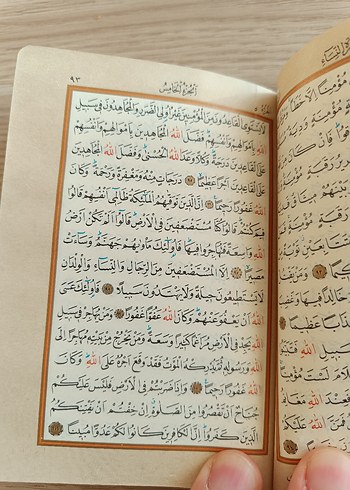 ٩٣
اَلْجُزْءُ الْخَامِسُ
لَا يَسْتَوِي الْقَاعِدُونَ مِنَ الْمُؤْمِنِينَ غَيْرُ اُولِي الضَّرَرِ وَالْمُجَاهِدُونَ فِي سَبِيلِ
اللّٰهِ بِاَمْوَالِهِمْ وَاَنْفُسِهِمْ فَضَّلَ اللّٰهُ الْمُجَاهِدِينَ بِاَمْوَالِهِمْ وَاَنْفُسِهِمْ
عَلَى الْقَاعِدِينَ دَرَجَةً وَكُلًّا وَعَدَ اللّٰهُ الْحُسْنٰى وَفَضَّلَ اللّٰهُ الْمُجَاهِدِينَ
عَلَى الْقَاعِدِينَ اَجْرًا عَظِيمًا ٩٥ دَرَجَاتٍ مِنْهُ وَمَغْفِرَةً وَرَحْمَةً وَكَانَ
اللّٰهُ غَفُورًا رَحِيمًا ٩٦ اِنَّ الَّذِينَ تَوَفّٰيهُمُ الْمَلٰٓئِكَةُ ظَالِمِٓي اَنْفُسِهِمْ قَالُوا
فِيمَ كُنْتُمْ قَالُوا كُنَّا مُسْتَضْعَفِينَ فِي الْاَرْضِ قَالُٓوا اَلَمْ تَكُنْ اَرْضُ
اللّٰهِ وَاسِعَةً فَتُهَاجِرُوا فِيهَا فَاُولٰٓئِكَ مَأْوٰيهُمْ جَهَنَّمُ وَسَٓاءَتْ
مَصِيرًا ٩٧ اِلَّا الْمُسْتَضْعَفِينَ مِنَ الرِّجَالِ وَالنِّسَٓاءِ وَالْوِلْدَانِ
لَا يَسْتَطِيعُونَ حِيلَةً وَلَا يَهْتَدُونَ سَبِيلًا ٩٨ فَاُولٰٓئِكَ عَسَى
اللّٰهُ اَنْ يَعْفُوَ عَنْهُمْ وَكَانَ اللّٰهُ عَفُوًّا غَفُورًا ٩٩ وَمَنْ يُهَاجِرْ فِي سَبِيلِ
اللّٰهِ يَجِدْ فِي الْاَرْضِ مُرَاغَمًا كَثِيرًا وَسَعَةً وَمَنْ يَخْرُجْ مِنْ بَيْتِهِ مُهَاجِرًا اِلَى
اللّٰهِ وَرَسُولِهِ ثُمَّ يُدْرِكْهُ الْمَوْتُ فَقَدْ وَقَعَ اَجْرُهُ عَلَى اللّٰهِ وَكَانَ
اللّٰهُ غَفُورًا رَحِيمًا ١٠٠ وَاِذَا ضَرَبْتُمْ فِي الْاَرْضِ فَلَيْسَ عَلَيْكُمْ
جُنَاحٌ اَنْ تَقْصُرُوا مِنَ الصَّلٰوةِ اِنْ خِفْتُمْ اَنْ يَفْتِنَكُمُ
الَّذِينَ كَفَرُوا اِنَّ الْكَافِرِينَ كَانُوا لَكُمْ عَدُوًّا مُبِينًا ١٠١